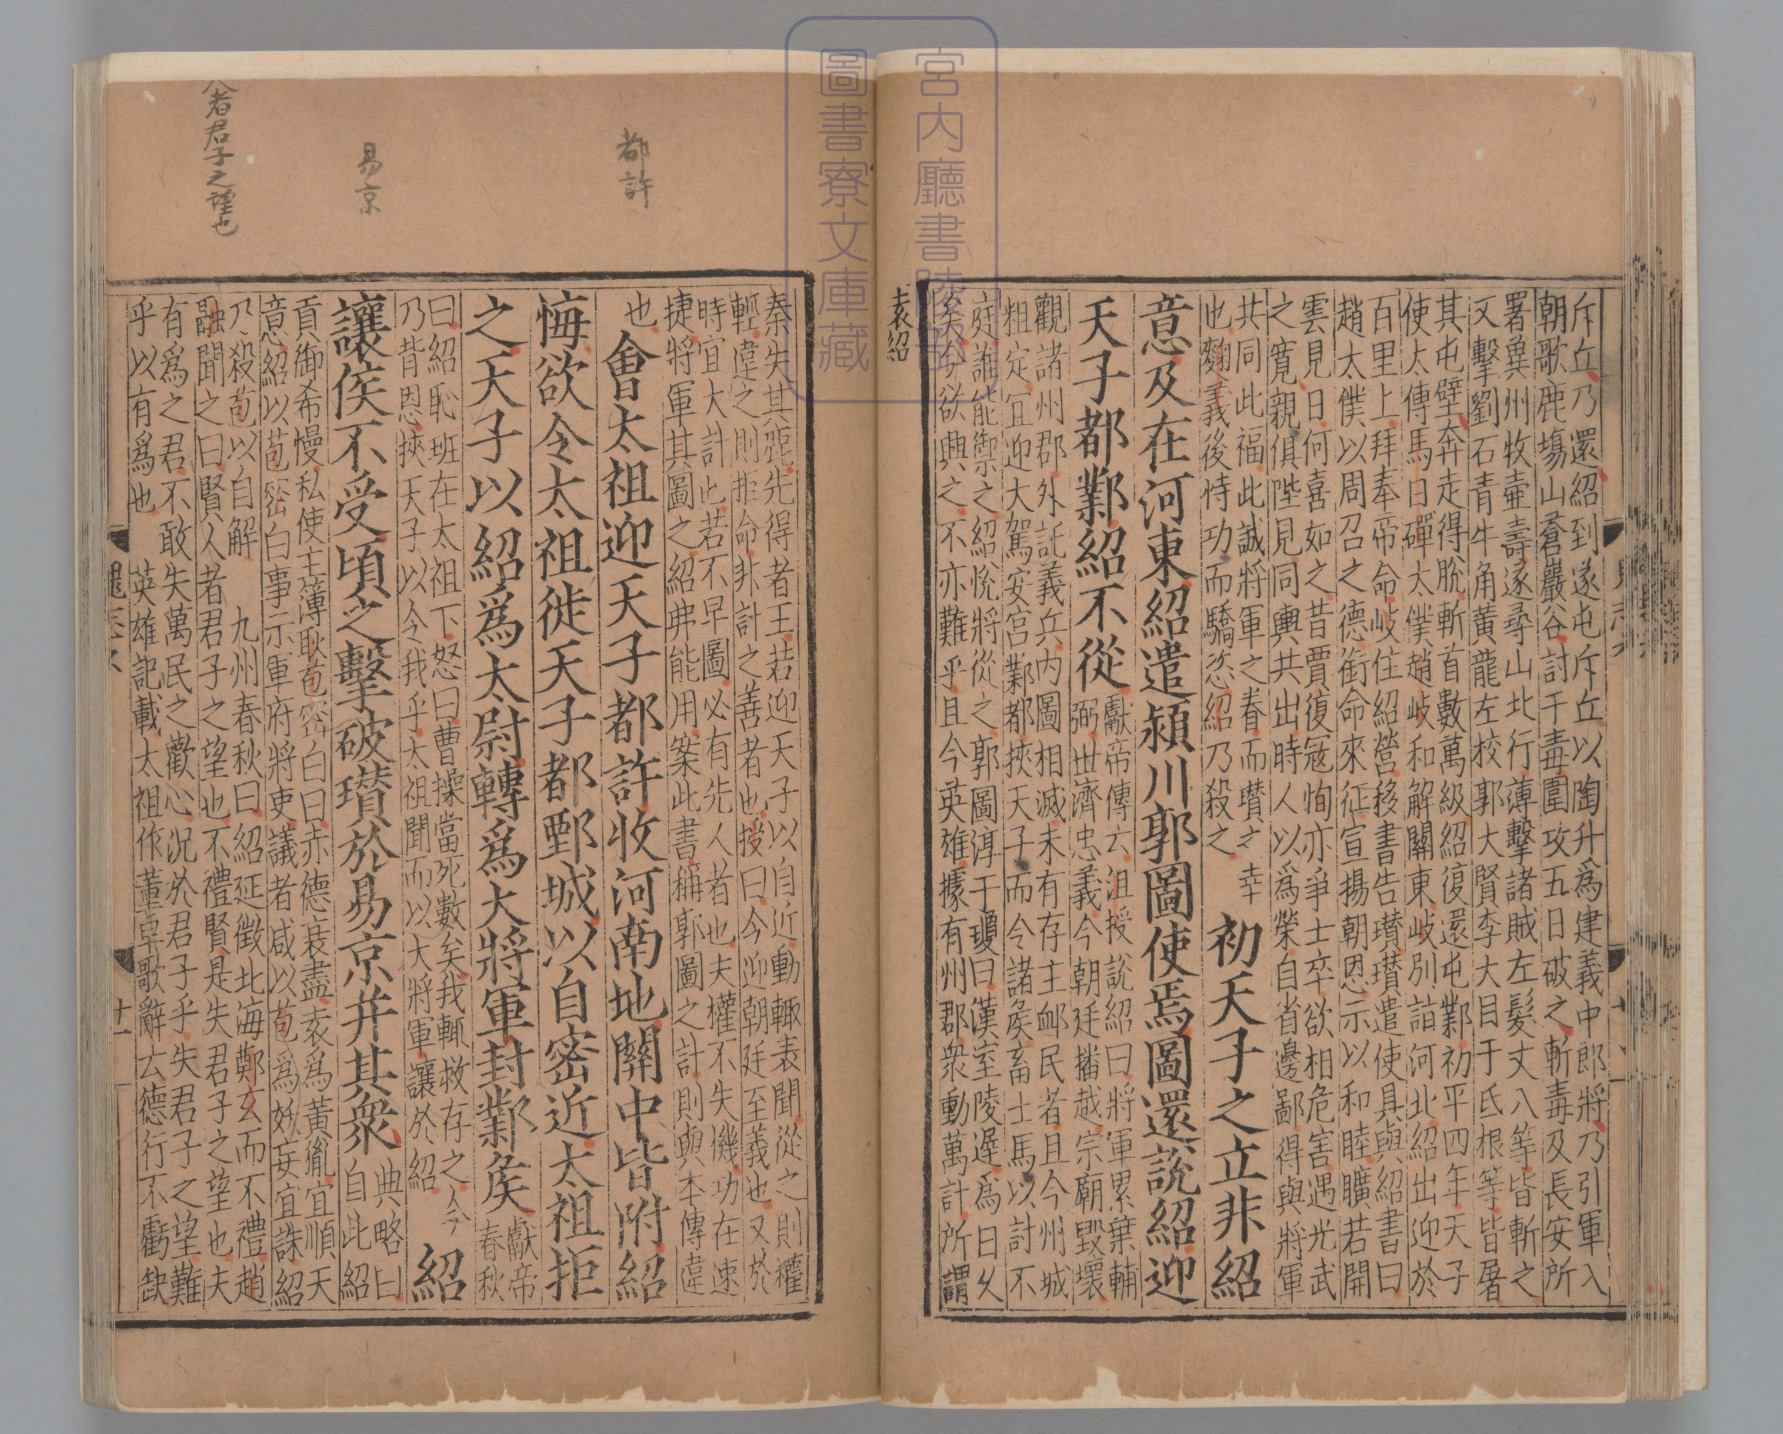 斥丘乃還紹到遂屯斥丘以陶升爲建義中郎將乃引軍入
朝歌鹿塲山蒼巖谷討干毒圍攻五日破之斬毒及長安所
署兾州牧壷壽遂尋山北行薄擊諸賊左髮丈八等皆斬之
又擊劉石青牛角黃龍左校郭大賢李大目于氐根等皆屠
其屯壁奔走得脫斬首數萬級紹復還屯鄴初平四年天子
使太傅馬日磾太僕趙岐和解關東岐別詣河北紹出迎於
百里上拜奉帝命岐住紹營移書告瓉瓉遣使具與紹書曰
趙太僕以周召之德銜命來征宣揚朝恩示以和睦曠若開
雲見日何喜如之昔賈復冦恂亦爭士卒欲相危害遇光武
之寬親俱陛見同輿共出時人以爲榮自省邊鄙得與將軍
共同此福此誠將軍之眷而瓉之幸
也麴義後恃功而驕恣紹乃殺之
初天子之立非紹
意及在河東紹遣潁川郭圖使焉圖還說紹迎
天子都鄴紹不從
獻帝傳云沮授說紹曰將軍累葉輔
弼世濟忠義今朝廷播越宗廟毀壞
觀諸州郡外託義兵內圖相滅未有存主䘏民者且今州城
粗定宜迎大駕安宮鄴都挾天子而令諸侯畜士馬以討不
庭誰能禦之紹悅將從之郭圖淳于瓊曰漢室陵遲爲日久
矣今欲興之不亦難乎且今英雄據有州郡衆動萬計所謂
袁紹
秦失其鹿先得者王若迎天子以自近動輒表聞從之則權
輕違之則拒命非計之善者也授曰今迎朝廷至義也又於
時宜大計也若不早圖必有先人者也夫權不失機功在速
捷將軍其圖之紹弗能用案此書稱郭圖之計則與本傳違
也
會太祖迎天子都許收河南地關中皆附紹
悔欲令太祖徙天子都鄄城以自密近太祖拒
之天子以紹爲太尉轉爲大將軍封鄴侯
獻帝
春秋
曰紹恥班在太祖下怒曰曹操當死數矣我輒救存之今
乃背恩挾天子以令我乎太祖聞而以大將軍讓於紹
紹
讓侯不受頃之擊破瓉於易京并其衆
典略曰
自此紹
貢御希慢私使主簿耿苞密白曰赤德衰盡袁爲黃胤宜順天
意紹以苞密白事示軍府將吏議者咸以苞爲妖妄宜誅紹
乃殺苞以自解
九州春秋曰紹延徵北海鄭玄而不禮趙
融聞之曰賢人者君子之望也不禮賢是失君子之望也夫
有爲之君不敢失萬民之歡心況於君子乎失君子之望難
乎以有爲也
英雄記載太祖作董卓歌辭云德行不虧缺
十一
都許
易京
人者君子之望也
宮內廳書陵部
圖書寮文庫藏